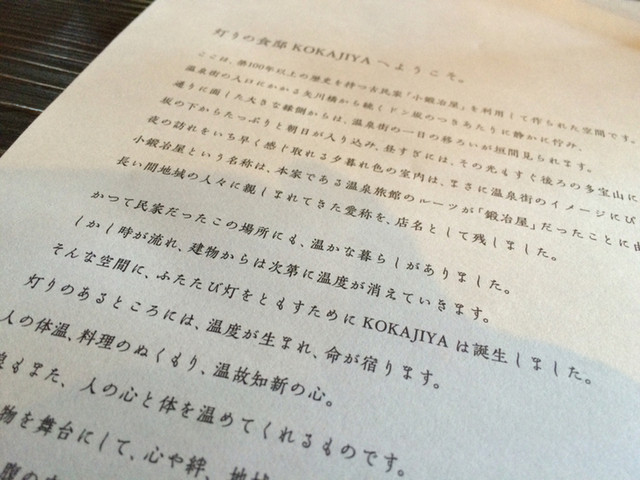 灯りの食邸 KOKAJIYA へようこそ。
ここは、築100年以上の歴史を持つ古民家「小鍛冶屋」を利用して作られた空間です。
温泉街の入口にかかる矢川橋から続くドン坂のつきあたりに静かに佇み、
通りに面した大きな縁側からは、温泉街の一日の移ろいが垣間見られます。
坂の下からたっぷりと朝日が入り込み、昼すぎには、その光もすぐ後ろの多宝山に
夜の訪れをいち早く感じ取れる夕暮れ色の室内は、まさに温泉街のイメージにぴ
小鍛冶屋という名称は、本家である温泉旅館のルーツが「鍛冶屋」だったことに由
長い間地域の人々に親しまれてきた愛称を、店名として残しました。
かつて民家だったこの場所にも、温かな暮らしがありました。
しかし時が流れ、建物からは次第に温度が消えていきます。
そんな空間に、ふたたび灯をともすために KOKAJIYA は誕生しました。
灯りのあるところには、温度が生まれ、命が宿ります。
人の体温、料理のぬくもり、温故知新の心。
もまた、人の心と体を温めてくれるものです。
物を舞台にして、心や絆、地域